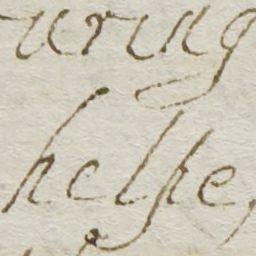 uring
helpe,